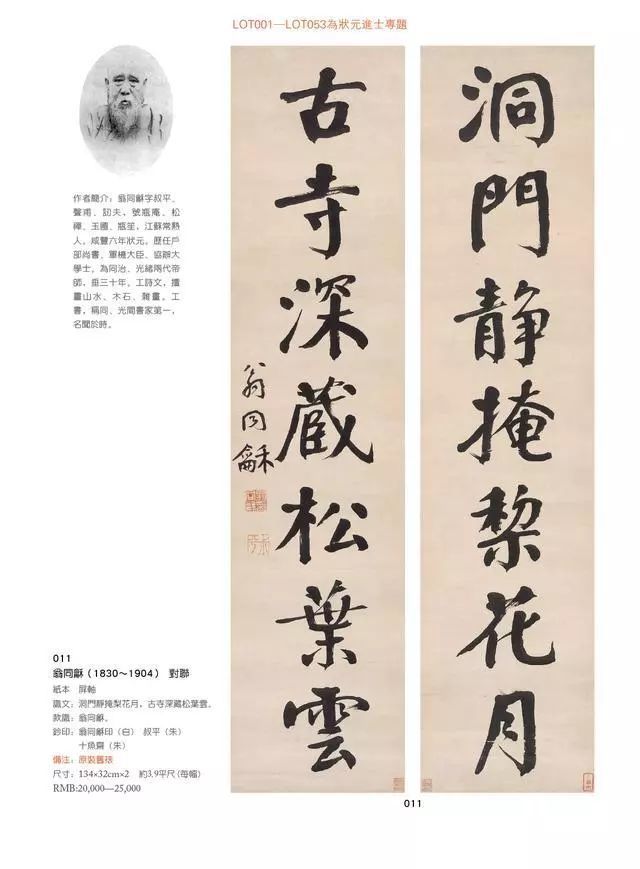 LOT001—LOT053為狀元進士專題
作者簡介：翁同龢字叔平、
聲甫、訒夫，號瓶庵、松
禪、玉圃、瓶笙，江蘇常熟
人。咸豐六年狀元。歷任戶
部尚書、軍機大臣、協辦大
學士。為同治、光緒兩代帝
師，垂三十年。工詩文，擅
畫山水、木石、雜畫。工
書，稱同、光間書家第一，
名聞於時。
洞門靜掩棃花月
古寺深蔵松葉雲
翁同龢
011
翁同龢（1830～1904） 對聯
紙本 屏軸
識文：洞門靜掩梨花月，古寺深藏松葉雲。
款識：翁同龢。
鈐印：翁同龢印（白） 叔平（朱）
十魚齋（朱）
備注：原裝舊裱
尺寸：134×32cm×2 約3.9平尺(每幅)
RMB:20,000—25,000
011